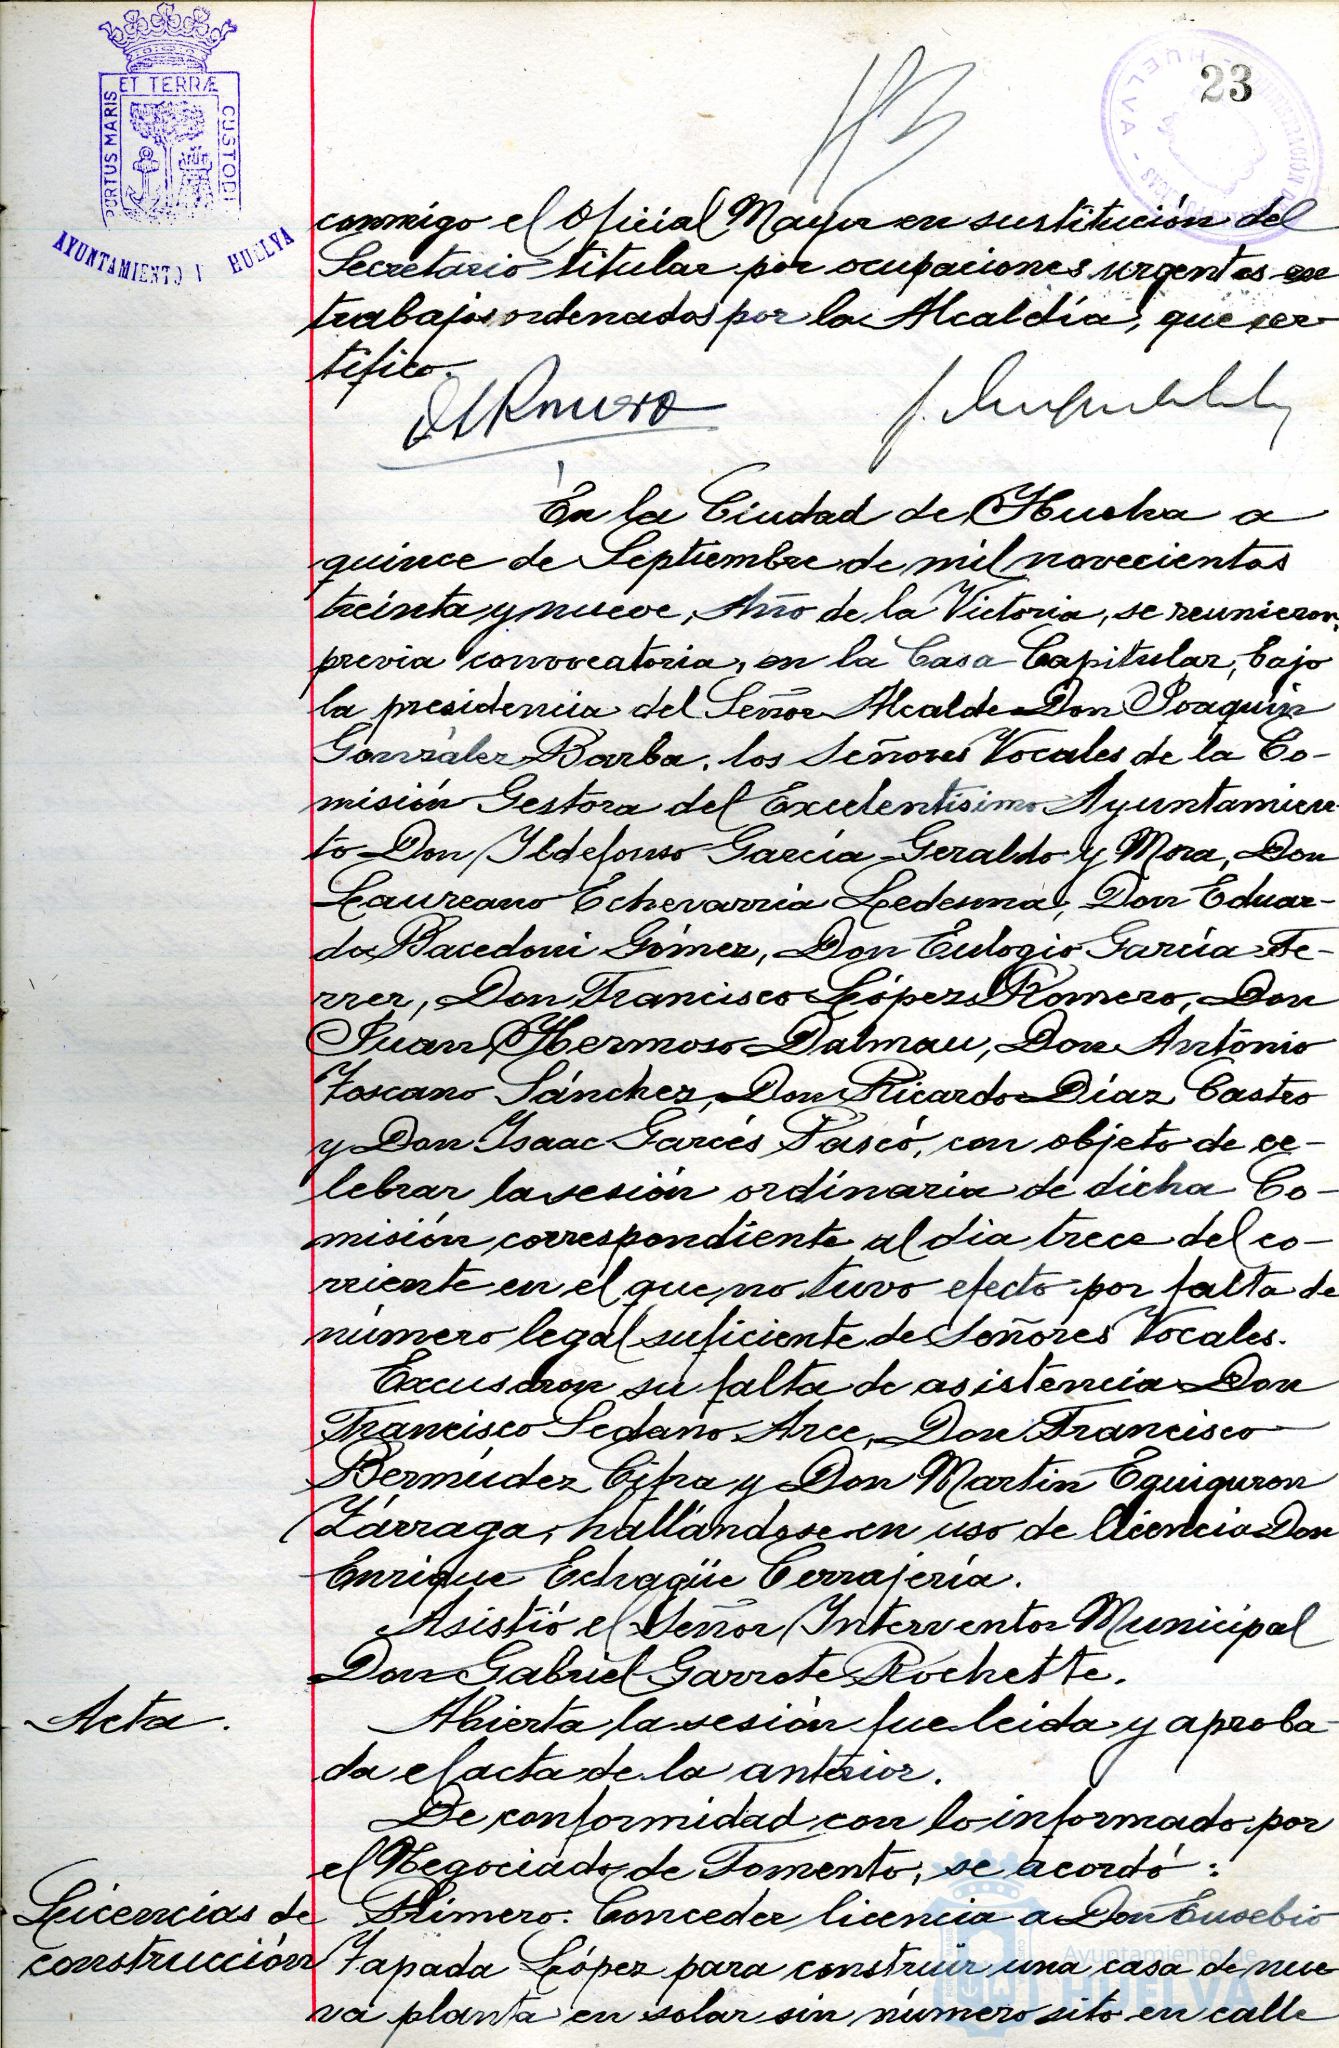 ET TERRÆ
PORTUS MARIS
CUSTODI
AYUNTAMIENTO HUELVA
23
HUELVA
conmigo el Oficial Mayor en sustitución del
Secretario titular por ocupaciones urgentes en
trabajos ordenados por la Alcaldía, que cer-
tifico.
En la Ciudad de Huelva a
quince de Septiembre de mil novecientos
treinta y nueve, Año de la Victoria, se reunieron,
previa convocatoria, en la Casa Capitular, bajo
la presidencia del Señor Alcalde Don Joaquín
González Barba, los Señores Vocales de la Co-
misión Gestora del Excelentísimo Ayuntamien-
to Don Ildefonso García Geraldo y Mora, Don
Laureano Echevarría Ledesma, Don Eduar-
do Bacedoni Gómez, Don Eulogio García Fe-
rrer, Don Francisco López Romero, Don
Juan Hermoso Dalmau, Don Antonio
Toscano Sánchez, Don Ricardo Díaz Castro
y Don Isaac Garcés Pascó, con objeto de ce-
lebrar la sesión ordinaria de dicha Co-
misión correspondiente al día trece del co-
rriente en el que no tuvo efecto por falta de
número legal suficiente de Señores Vocales.
Excusaron su falta de asistencia Don
Francisco Sedano Arce, Don Francisco
Bermúdez Cifra y Don Martín Eguiguron
Zárraga, hallándose en uso de licencia Don
Enrique Echagüe Cerrajería.
Asistió el Señor Interventor Municipal
Don Gabriel Garrote Rochette.
Acta.
Abierta la sesión fue leida y aproba-
da el acta de la anterior.
De conformidad con lo informado por
el Negociado de Fomento, se acordó:
Licencias de
construcción
Primero. Conceder licencia a Don Eusebio
Tapada López para construir una casa de nue
va planta en solar sin número sito en calle
Ayuntamiento de
HUELVA